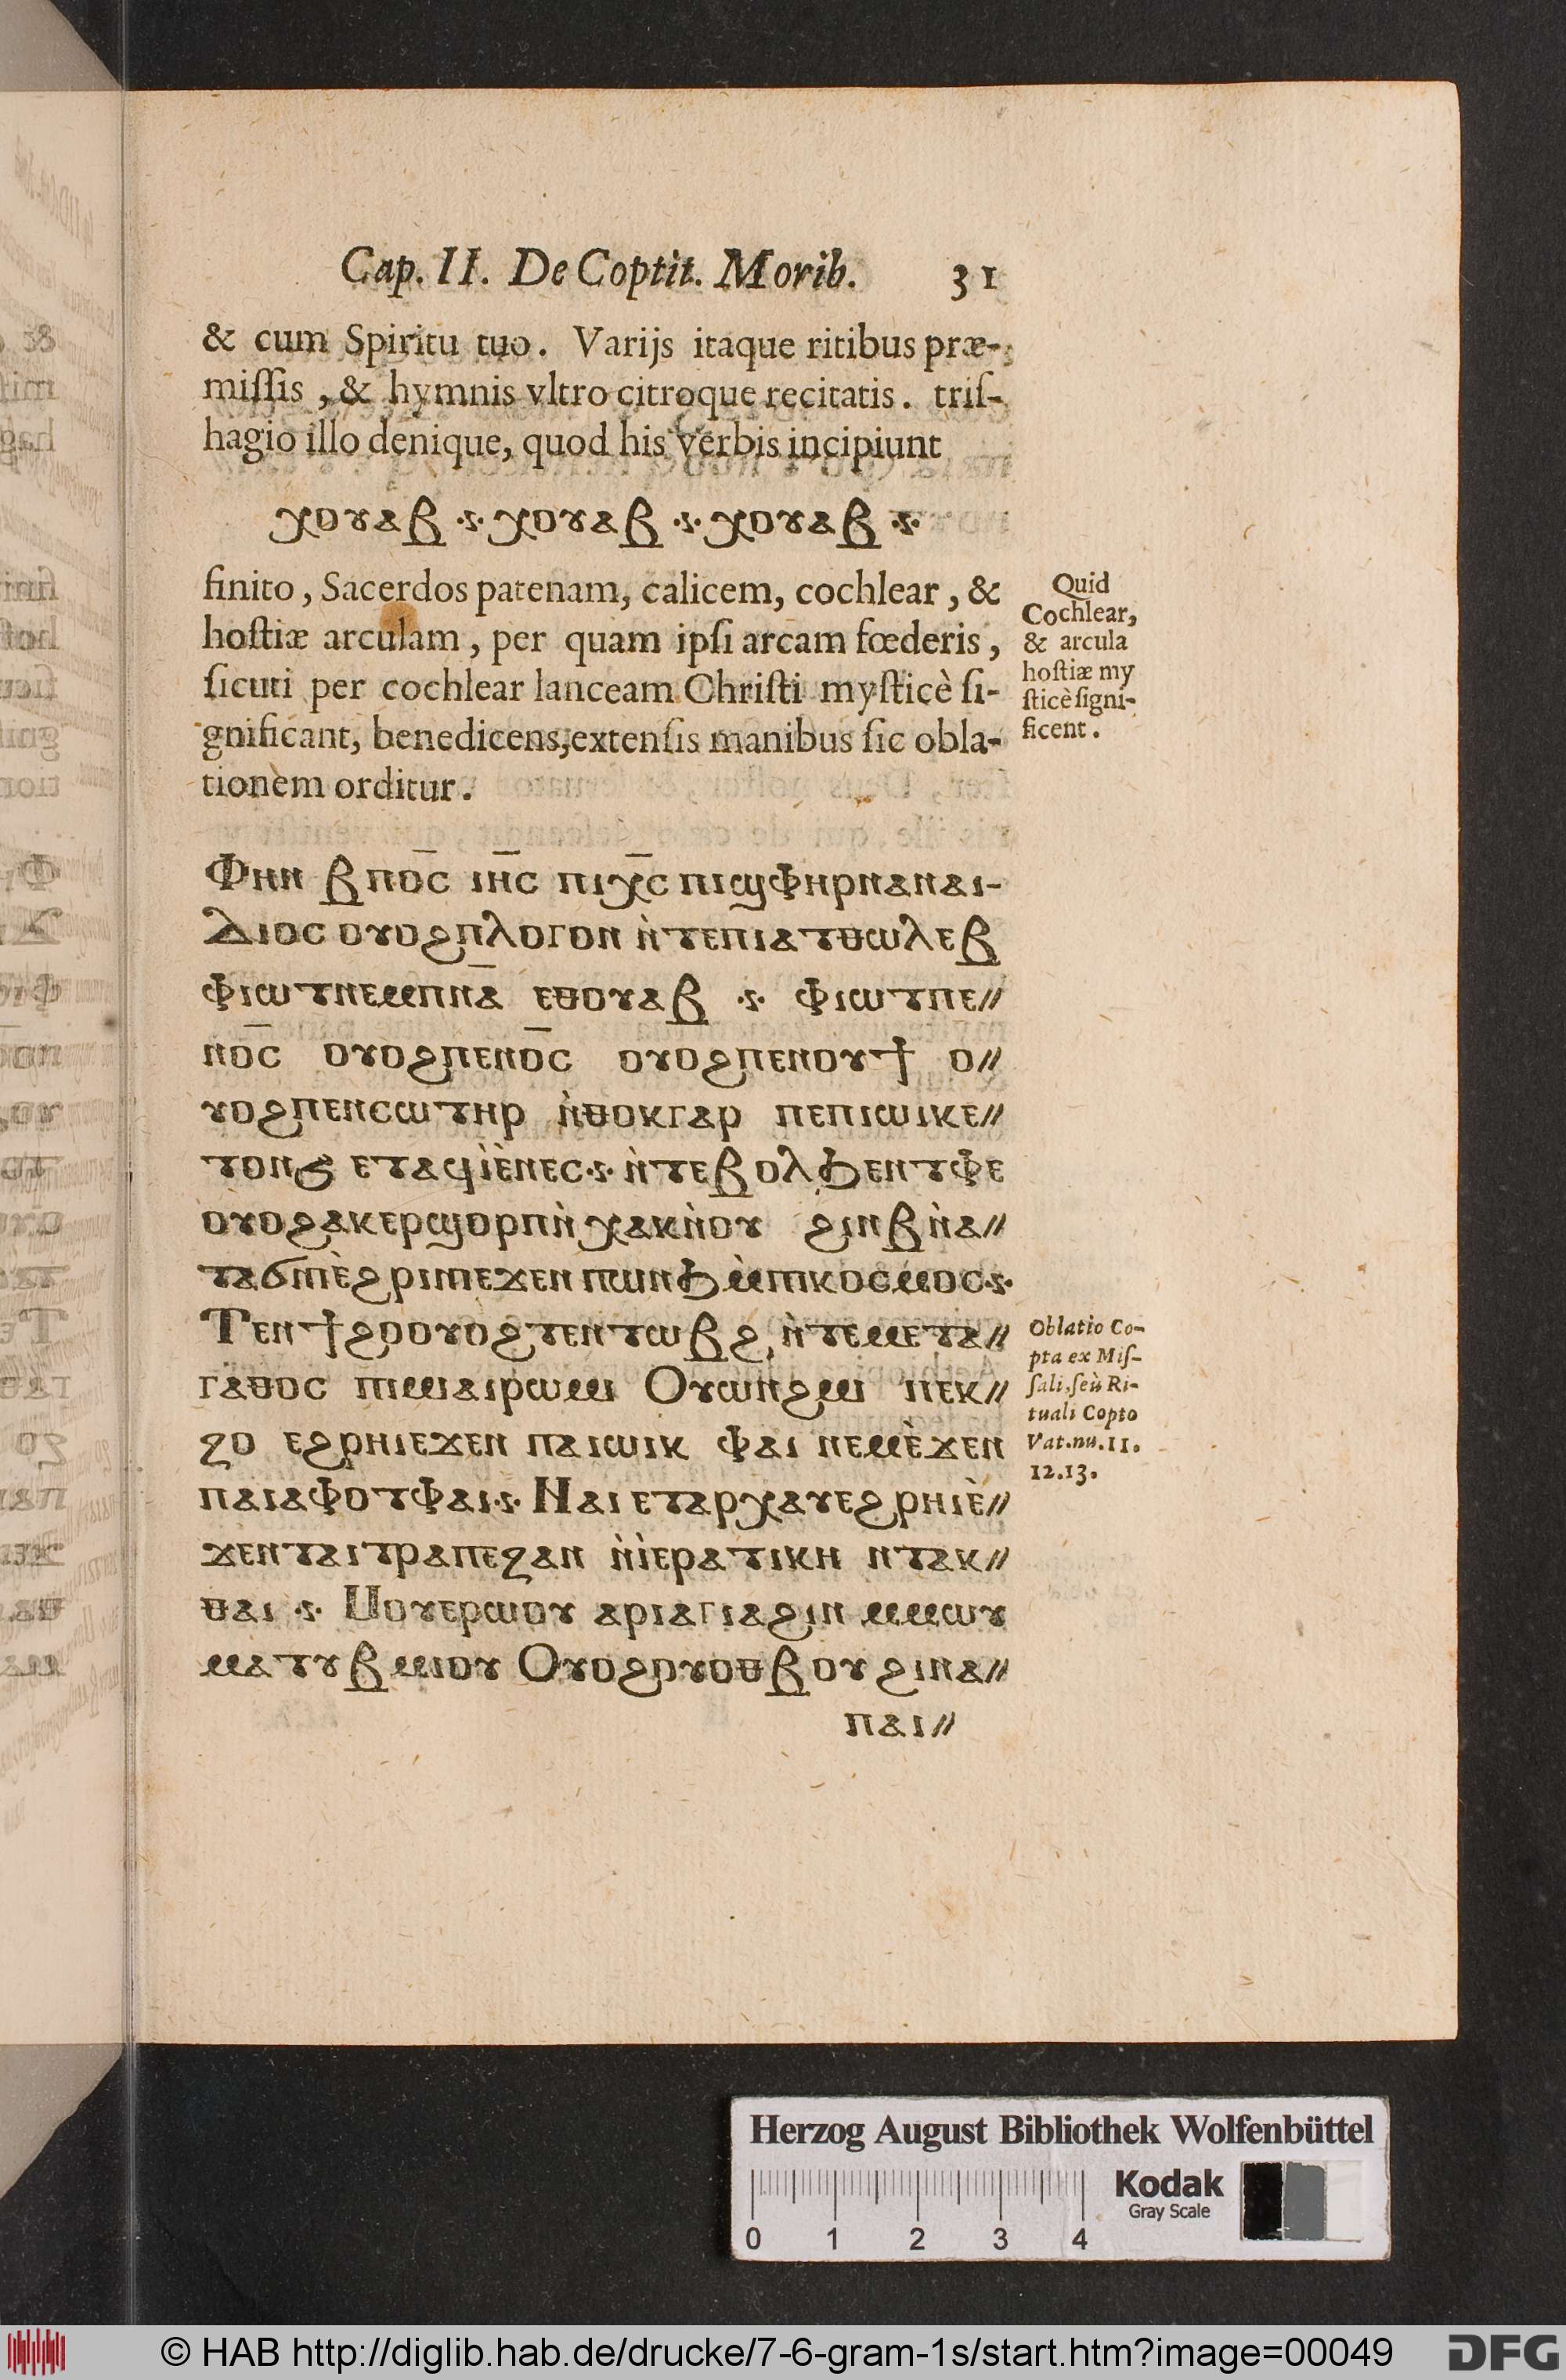 Cap. II. De Coptit. Morib. 31
& cum Spiritu tuo. Varijs itaque ritibus præ-
miſſis, & hymnis vltro citroque recitatis. triſ-
hagio illo denique, quod his verbis incipiunt
ⲭⲟⲩⲁⲃ ·s· ⲭⲟⲩⲁⲃ ·s· ⲭⲟⲩⲁⲃ ·s·
finito, Sacerdos patenam, calicem, cochlear, &
hoſtiæ arculam, per quam ipſi arcam fœderis,
ſicuti per cochlear lanceam Chriſti myſticè ſi-
gnificant, benedicens, extenſis manibus ſic obla-
tionem orditur.
Quid
Cochlear,
& arcula
hoſtiæ my
ſticè ſigni-
ficent.
Ⲫⲏⲛ ⲃⲡⲟ̅ⲥ ⲓⲏ̅ⲥ ⲡⲓⲭ̅ⲥ ⲡⲓϣⲫⲏⲣⲛⲁⲛⲁⲓ-
Ⲇⲓⲟⲥ ⲟⲩⲟϩⲡⲗⲟⲅⲟⲛ ⲛ̀ⲧⲉⲡⲓⲁⲧⲑⲱⲗⲉⲃ
ⲫⲓⲱⲧⲛⲉⲙⲡⲛ̅ⲁ ⲉⲑⲟⲩⲁⲃ ·s· ⲫⲓⲱⲧⲡⲉ//
ⲛⲟ̅ⲥ ⲟⲩⲟϩⲡⲉⲛⲟ̅ⲥ ⲟⲩⲟϩⲡⲉⲛⲟⲩϯ ⲟ//
ⲩⲟϩⲡⲉⲛⲥⲱⲧⲏⲣ ⲛ̀ⲑⲟⲕⲅⲁⲣ ⲡⲉⲡⲓⲱⲓⲕⲉ//
ⲧⲟⲛϧ ⲉⲧⲁϥⲓ̀ⲉ̀ⲛⲉⲥ·s· ⲛ̀ⲧⲉⲃⲟⲗϦⲉⲛⲧⲫⲉ
ⲟⲩⲟϩⲁⲕⲉⲣϣⲟⲣⲡⲛ̀ⲭⲁⲕⲛ̀ⲟⲩ ϩⲓⲛⲃⲛ̀ⲁ//
ⲧⲁϭⲛⲓⲉ̀ϩⲣⲓⲡⲓⲉϫⲉⲛ ⲡⲱⲛϦⲙ̀ⲡⲓⲕⲟⲥⲙⲟⲥ·s·
Ⲧⲉⲛϯϩⲟⲟⲩⲟϩⲧⲉⲛⲧⲱⲃϩ, ⲛ̀ⲧⲉⲙⲉⲧⲁ//
ⲅⲁⲑⲟⲥ ⲡⲓⲙⲁⲓⲣⲱⲙⲓ Ⲟⲩⲱⲛϩⲙⲓ ⲡⲉⲕ//
ϩⲟ ⲉϩⲣⲏⲓⲉϫⲉⲛ ⲡⲁⲓⲱⲓⲕ ⲫⲁⲓ ⲛⲉⲙⲉ̀ϫⲉⲛ
ⲡⲁⲓⲁⲫⲟⲧⲫⲁⲓ·s· Ⲛⲁⲓ ⲉⲧⲁⲣⲭⲁⲩⲉϩⲣⲏⲓⲉ̀//
ϫⲉⲛⲧⲁⲓⲧⲣⲁⲡⲉⲍⲁⲛ ⲛ̀ⲓ̀ⲉⲣⲁⲧⲓⲕⲏ ⲛⲧⲁⲕ//
ⲑⲁⲓ ·s· Ⲙⲟⲩⲉⲣⲱⲟⲩ ⲁⲣⲓⲁⲅⲓⲁϩⲓⲛ ⲙⲙⲱⲩ
ⲙⲁⲧⲩⲃⲙⲓⲟⲩ Ⲟⲩⲟϩⲟⲩⲟⲑⲃⲟⲩ ϩⲓⲛⲁ//
ⲡⲁⲓ//
Oblatio Co-
pta ex Miſ-
ſali, ſeù Ri-
tuali Copto
Vat. nu. 11.
12. 13.
Herzog August Bibliothek Wolfenbüttel
Kodak
Gray Scale
0 1 2 3 4
© HAB http://diglib.hab.de/drucke/7-6-gram-1s/start.htm?image=00049
DFG